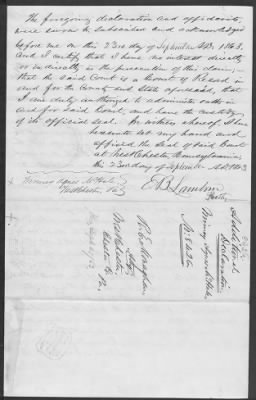 The foregoing declaration and affidavits,
were sworn to subscribed and acknowledged
before me on this 23rd day of September AD. 1863.
And I certify that I have no interest directly
or indirectly in the prosecution of this claim,
that the said Court is a Court of Record, in
and for the County and State aforesaid, that
I am duly authorized to administer oaths in
and for said Court, and have the custody
of its official seal. In witness whereof, I have
hereunto set my hand and
affixed the seal of said Court
at West Chester Pennsylvania
this 23rd day of September AD 1863
West Chester Pa
Additional
Declaration
No. 8426
Atty
West Chester
Chester Co.
Pa.